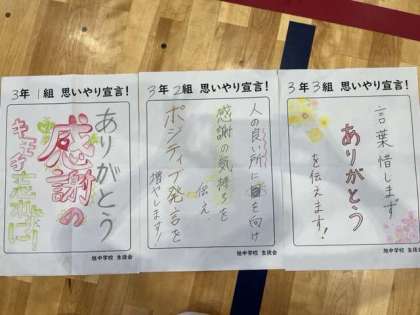 3年 1組 思いやり宣言！
ありがとう
感謝の
キモチ忘れずに！
旭中学校 生徒会
3年 2組 思いやり宣言！
人の良い所に目を向け
感謝の気持ちを
伝え
ポジティブ発言を
増やします！
旭中学校 生徒会
3年 3組 思いやり宣言！
言葉惜しまず
ありがとう
を伝えます！
旭中学校 生徒会